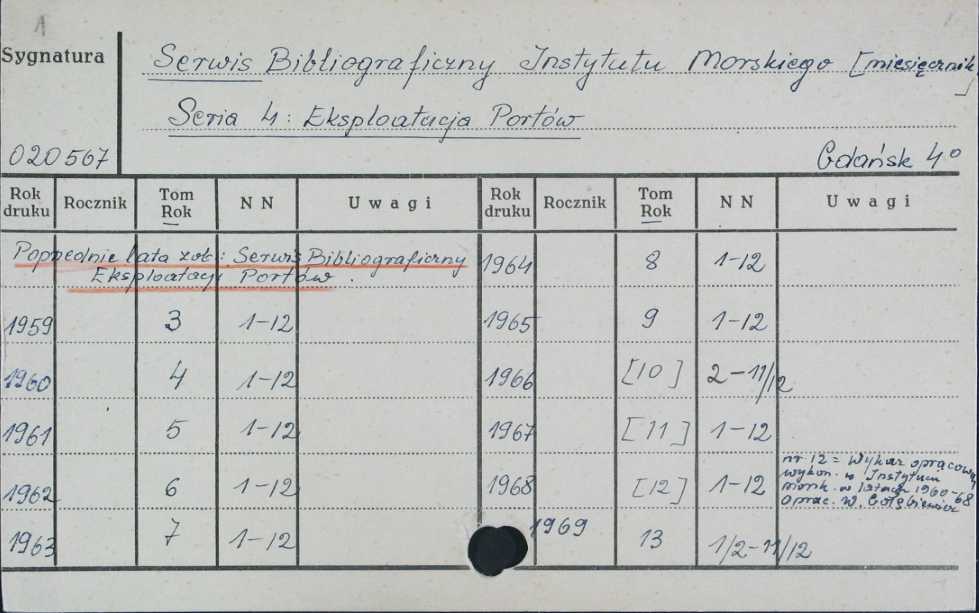 1
Sygnatura
Serwis Bibliograficzny Instytutu Morskiego [miesięcznik]
Seria 4: Eksploatacja Portów
020567
Gdańsk 4°
Rok druku Rocznik Tom Rok NN Uwagi Rok druku Rocznik Tom Rok NN Uwagi
Poprzednie lata zob: Serwis Bibliograficzny
Eksploatacji Portów.
1964 8 1-12
1959 3 1-12 1965 9 1-12
1960 4 1-12 1966 [10] 2-11/12
1961 5 1-12 1967 [11] 1-12
1962 6 1-12 1968 [12] 1-12
nr 12 = Wykaz
wykon. w Instytucie
morsk. w latach 1960-68
oprac. W.
1963 7 1-12 1969 13 1/2-11/12